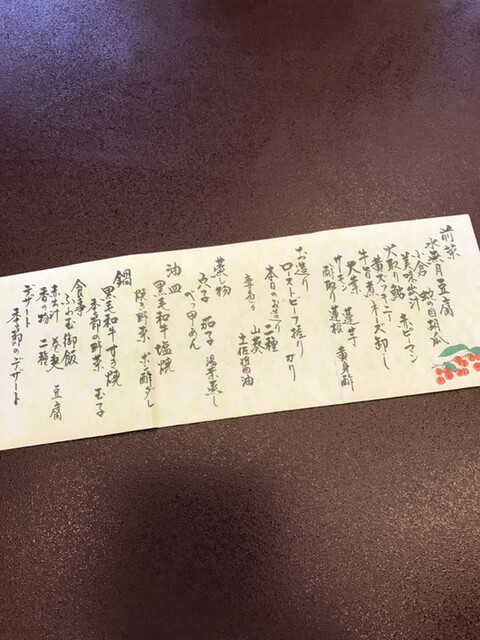 前菜
水無月豆腐
小倉 蚊の目胡瓜
美味出汁 赤ピーマン
火取り鮎
黄ズッキーニ チーズ卸し
牛旨煮
天茶
サーモン 蓮芋
酢取り 蓮根 黄身酢
お造り
ローストビーフ握り ガリ
本日のお造り 二種
山葵
土佐醤油
蒸し物
穴子 茄子 湯葉蒸し
べっ甲あん
油皿
黒毛和牛塩焼
焼き野菜 ポン酢ダレ
鍋
黒毛和牛すき焼
季節の野菜 玉子
食事
御飯
赤出汁 豆腐
香の物 二種
デザート
季節のデザート